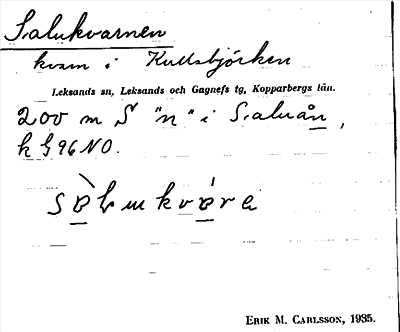 Salukvarnen
kvarn i Kullsbjörken
Leksands sn, Leksands och Gagnefs tg, Kopparbergs län.
200 m S "n" i Saluån,
k G 96 NO.
ERIK M. CARLSSON, 1935.